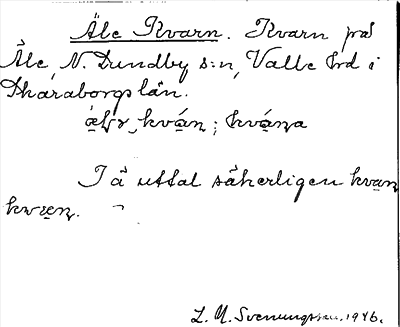 Åle Kvarn. Kvarn på
Åle, N. Lundby s:n, Valle hrd i
Skaraborgs län.
kván; kvána
I ä uttal säkerligen kvan
kvæn.
L. M. Svenungsson. 1946.